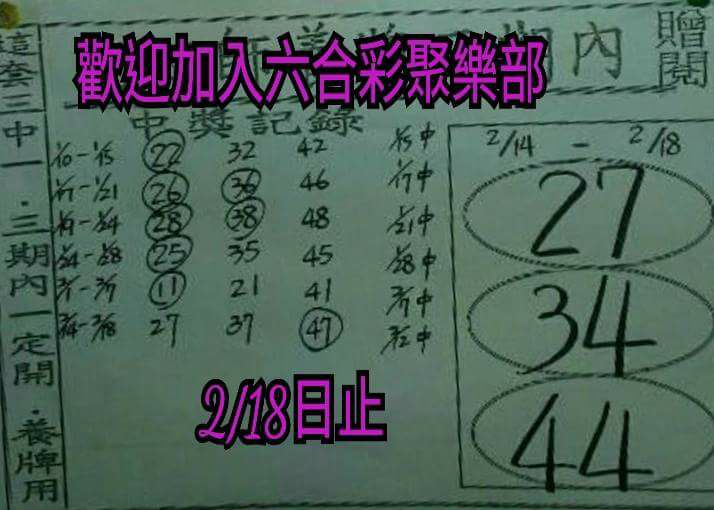 歡迎加入六合彩聚樂部
期內
贈閱
這套三中一．三期內一定開．養牌用
中獎記錄
1/10-1/15 22 32 42 1/15中
1/17-1/21 26 36 46 1/17中
28 38 48 1/21中
25 35 45 1/28中
11 21 41
27 37 47 2/12中
2/14-2/18
27
34
44
2/18日止